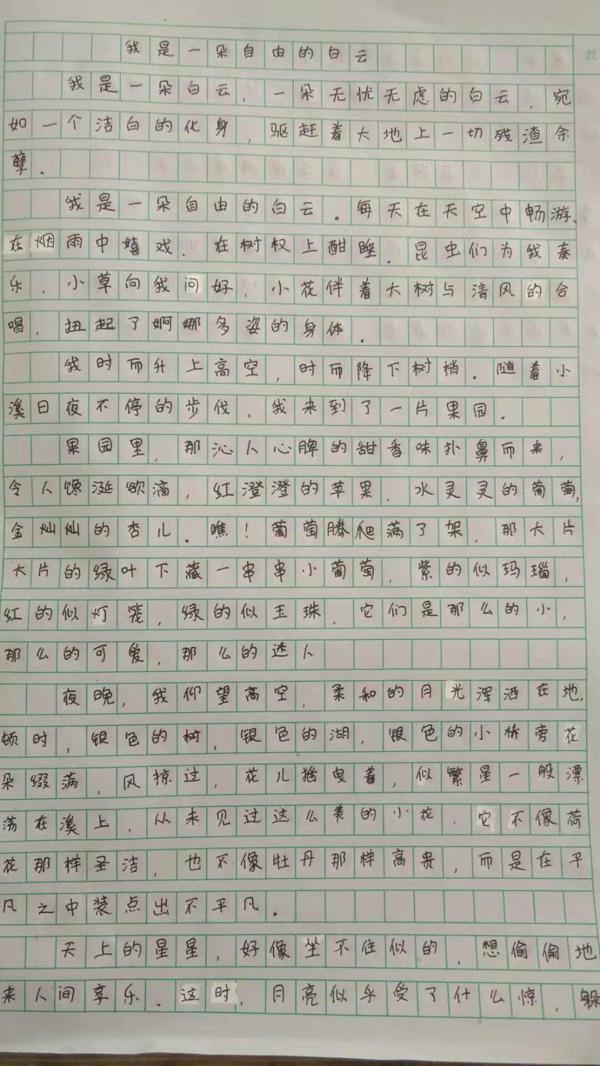 我是一朵自由的白云
我是一朵白云，一朵无忧无虑的白云，宛
如一个洁白的化身，驱赶着大地上一切残渣余
孽．
我是一朵自由的白云．每天在天空中畅游、
在烟雨中嬉戏、在树杈上酣睡．昆虫们为我奏
乐，小草向我问好，小花伴着大树与清风的合
唱，扭起了婀娜多姿的身体．
我时而升上高空，时而降下树梢．随着小
溪日夜不停的步伐，我来到了一片果园．
果园里，那沁人心脾的甜香味扑鼻而来，
令人馋涎欲滴，红澄澄的苹果，水灵灵的葡萄，
金灿灿的杏儿．瞧！葡萄藤爬满了架，那大片
大片的绿叶下藏一串串小葡萄，紫的似玛瑙，
红的似灯笼，绿的似玉珠．它们是那么的小，
那么的可爱，那么的迷人
夜晚，我仰望高空，柔和的月光浑洒在地．
顿时，银色的树，银色的湖，银色的小桥旁花
朵缀满，风掠过，花儿摇曳着，似繁星一般漂
荡在溪上，从未见过这么美的小花．它不像荷
花那样圣洁，也不像牡丹那样高贵，而是在平
凡之中装点出不平凡．
天上的星星，好像坐不住似的，想偷偷地
来人间享乐．这时，月亮似乎受了什么惊，躲